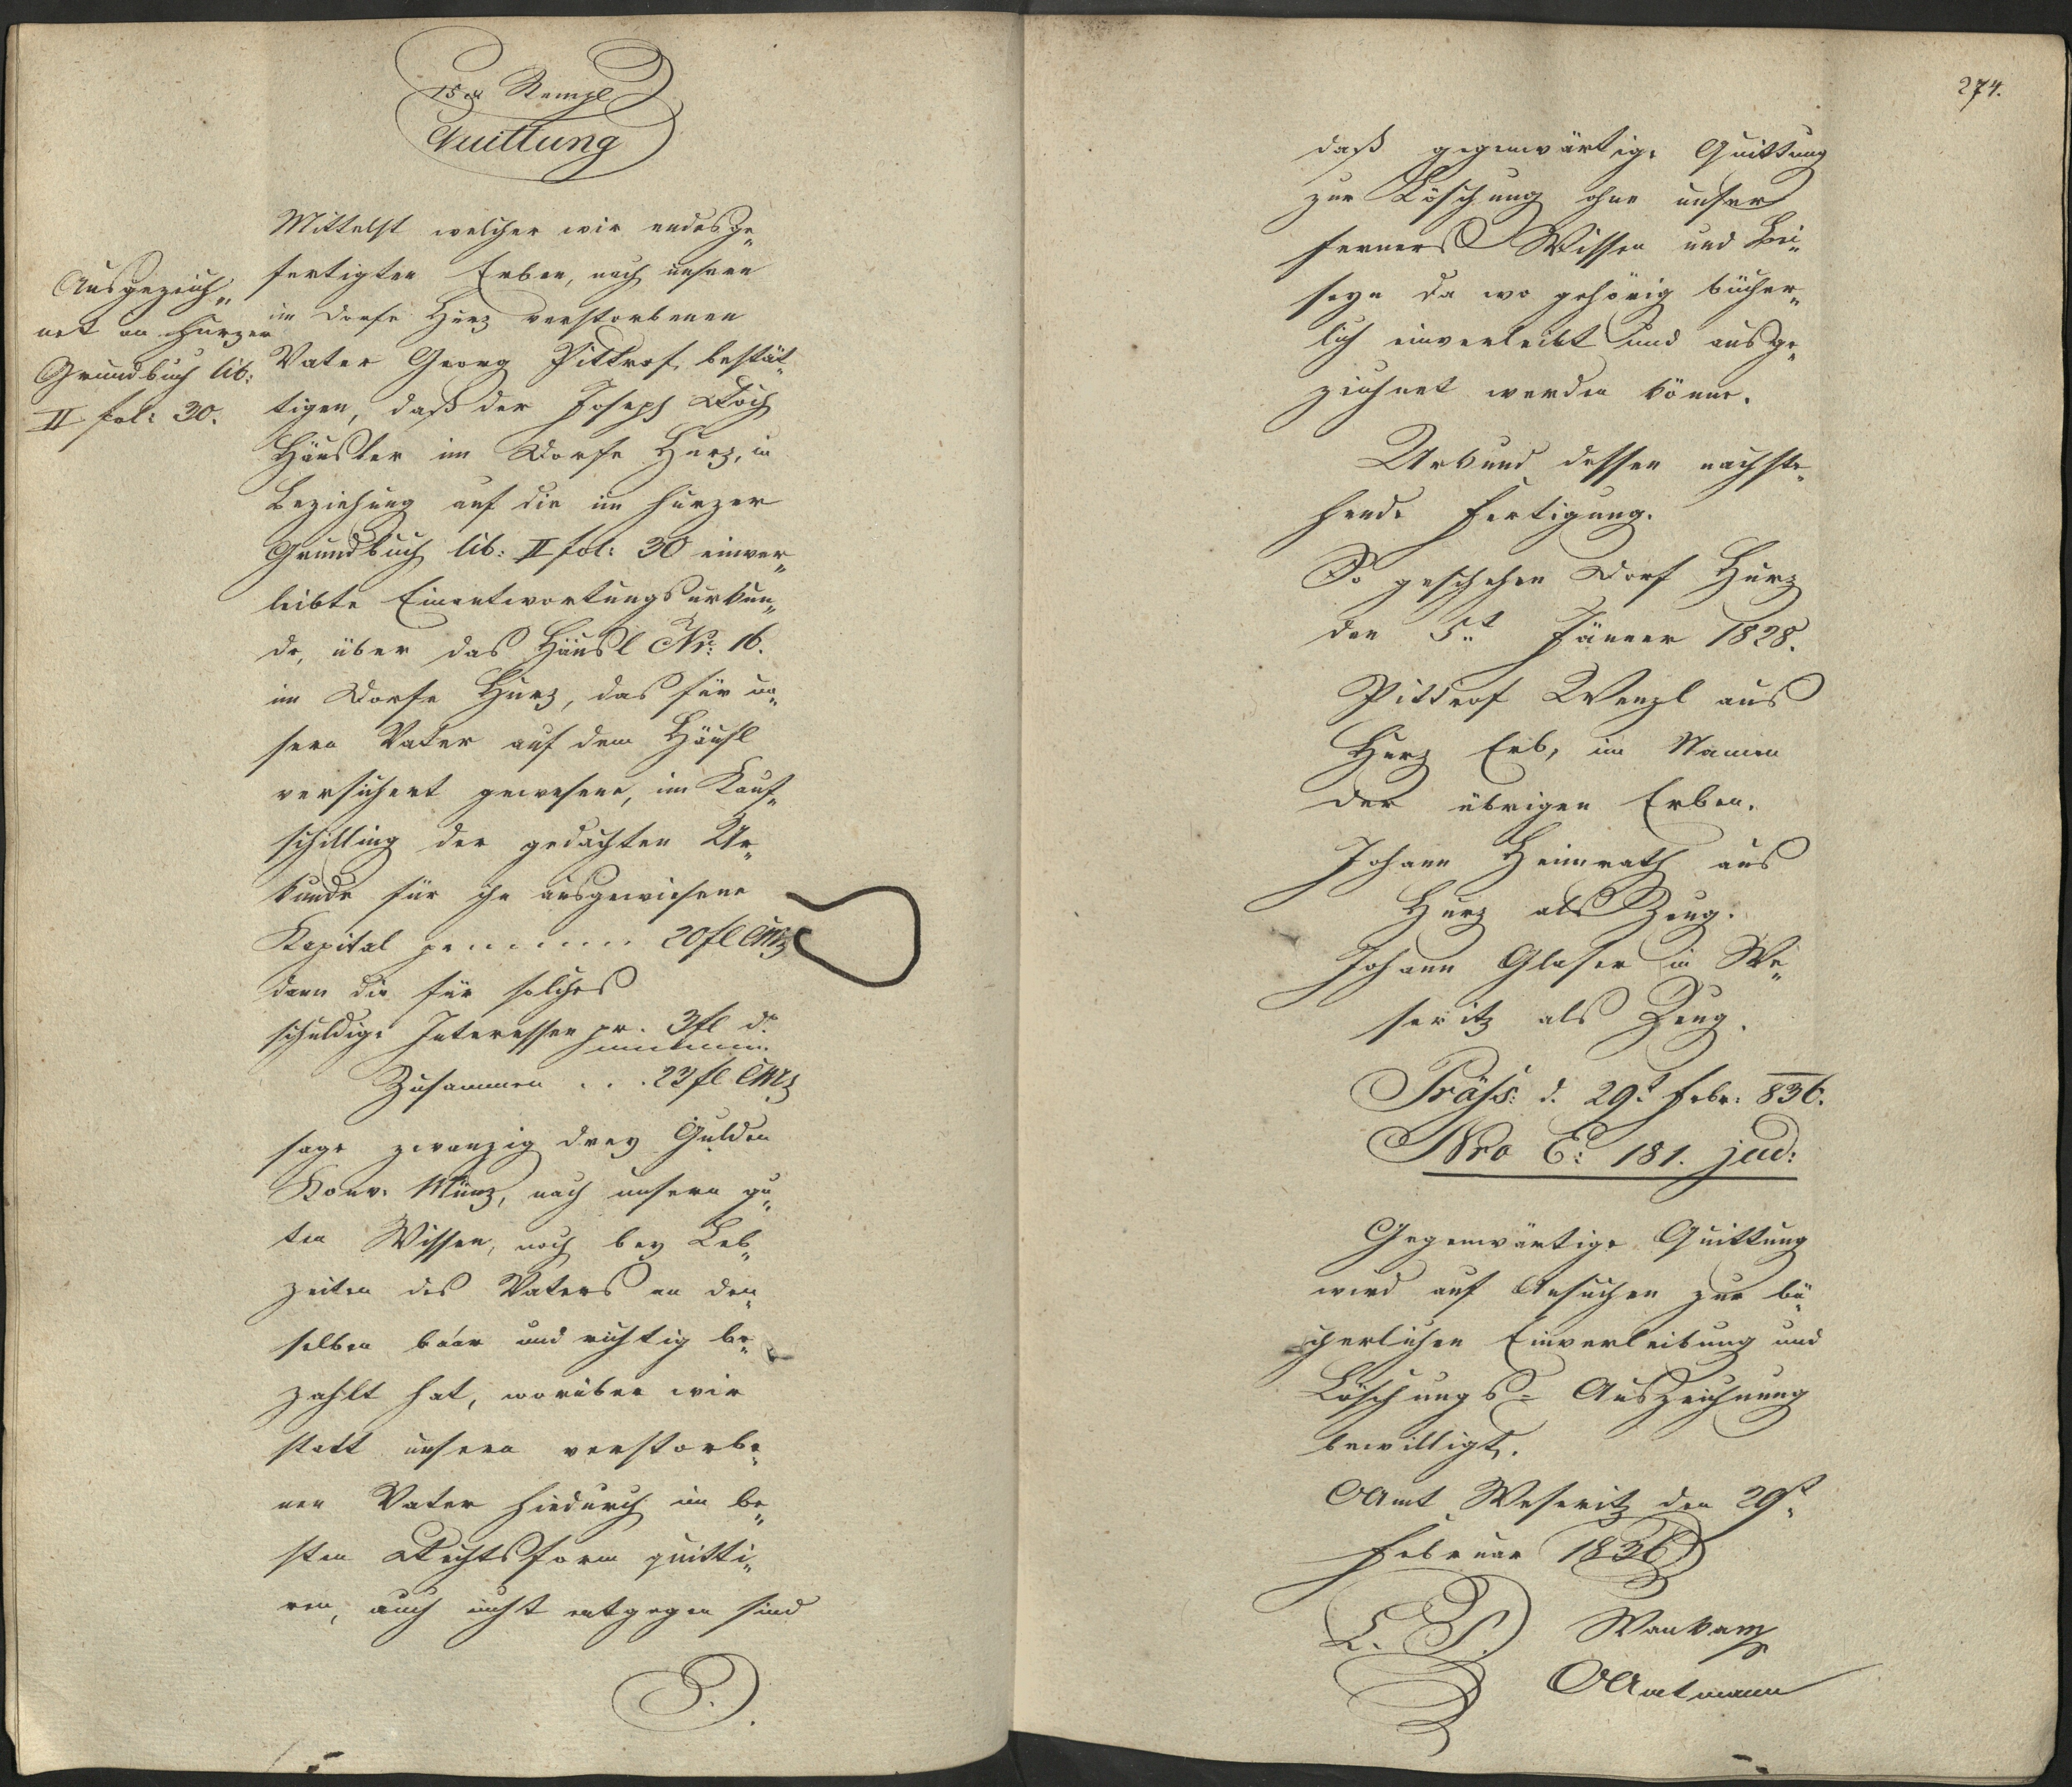 15 xr Stempl
Quittung
Mittelst welcher wir endesge„
fertigten Erben, nach unsern
im Dorfe Hurz verstorbenen
Vater Georg Pittrof, bestät„
tigen, daß der Joseph Koch
Häusler im Dorfe Hurz, in
Beziehung auf die im Hurzer
Grundbuch lib: II fol: 30 einver„
leibte Einantwortungsurkun„
de, über das Häusl Nr: 16.
im Dorfe Hurz, das für un„
sern Vater auf dem Häusl
versichert gewesene, im Kauf„
schilling der gedachten Ur„
kunde für ihn ausgewiesene
Kapital pr ....... 20 fl CMz
dann die für solches
schuldige Interessen pr. 3 fl do
Zusammen . . . 23 fl CMz
sage zwanzig drey Gulden
Konv. Münz, nach unsern gu„
ten Wissen, noch bey Leb„
zeiten des Vaters an den„
selben baar und richtig be„
zahlt hat, worüber wir
statt unsern verstorbe„
nen Vater hiedurch im be„
sten Rechtsform quitti„
ren, auch nicht entgegen sind
Ausgezeich„
net im Hurzer
Grundbuch lib:
II fol: 30.
274.
daß gegenwärtige Quittung
zur Löschung ohne unser
ferners Wissen und Bei„
seyn da wo gehörig bücher„
lich einverleibt und ausge„
zeichnet werden könne.
Urkund dessen nachste„
hende Fertigung.
So geschehen Dorf Hurz
den 5t Jänner 1828.
Pittrof Wenzl aus
Hurz Erb, im Namen
der übrigen Erben.
Johann Heinrath aus
Hurz als Zeug.
Johann Glaser in We„
seritz als Zeug.
Präs: d. 29t Febr: 836.
Nro E: 181. jud:
Gegenwärtige Quittung
wird auf Ansuchen zur bü„
cherlichen Einverleibung und
Löschungs= Auszeichnung
bewilligt.
OAmt Weseritz den 29t
Februar 1836
L. S.
OAmtmann